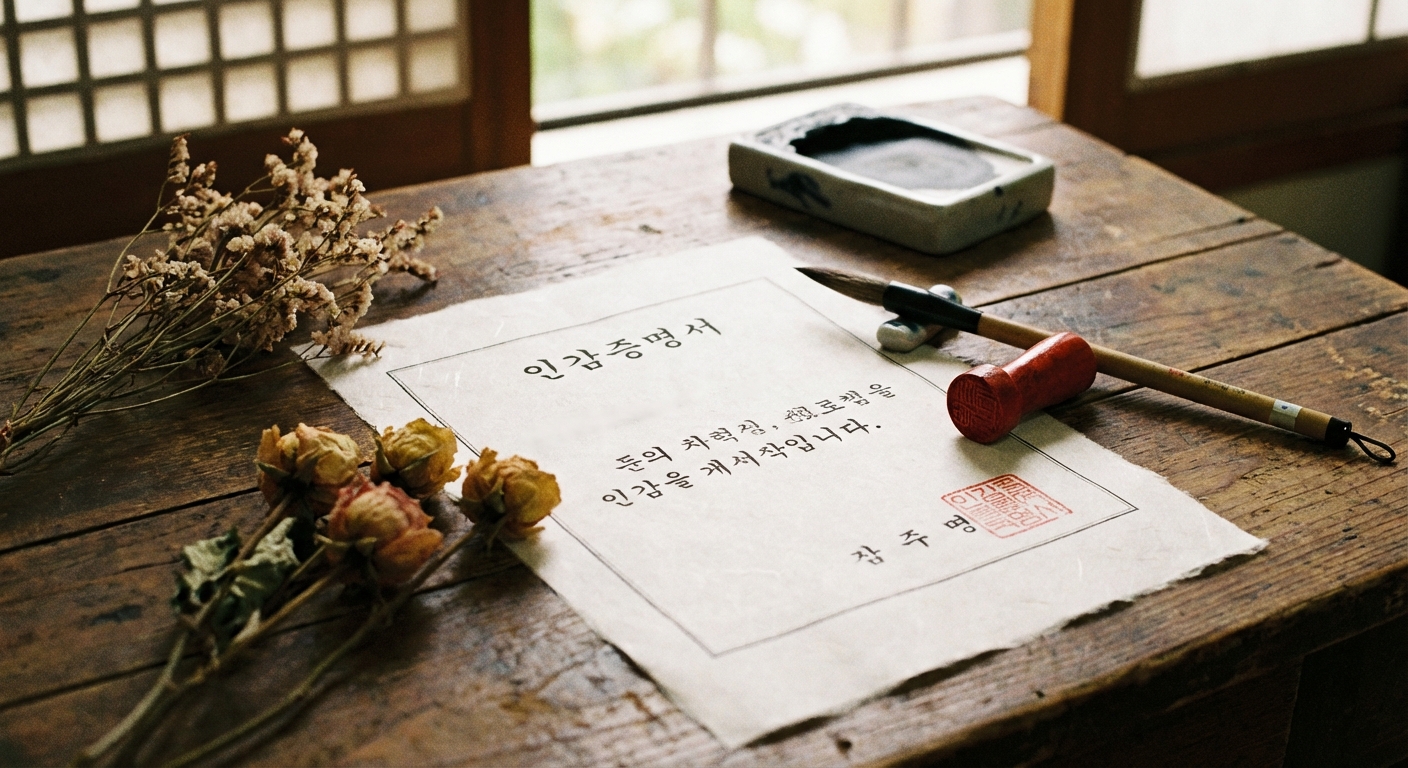 인감증명서
둔의 차력정, 로쳄을
인감을 개서작입니다.
잠주명